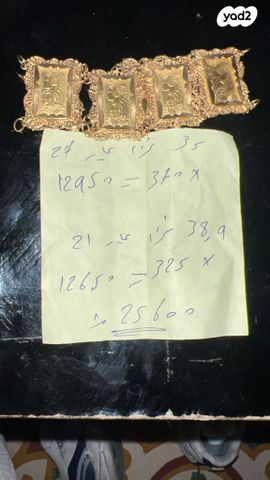 yad2
24 עיار وزن 35
12950 = 370 x
21 عيار وزن 38,9
12650 = 325 x
= 25600